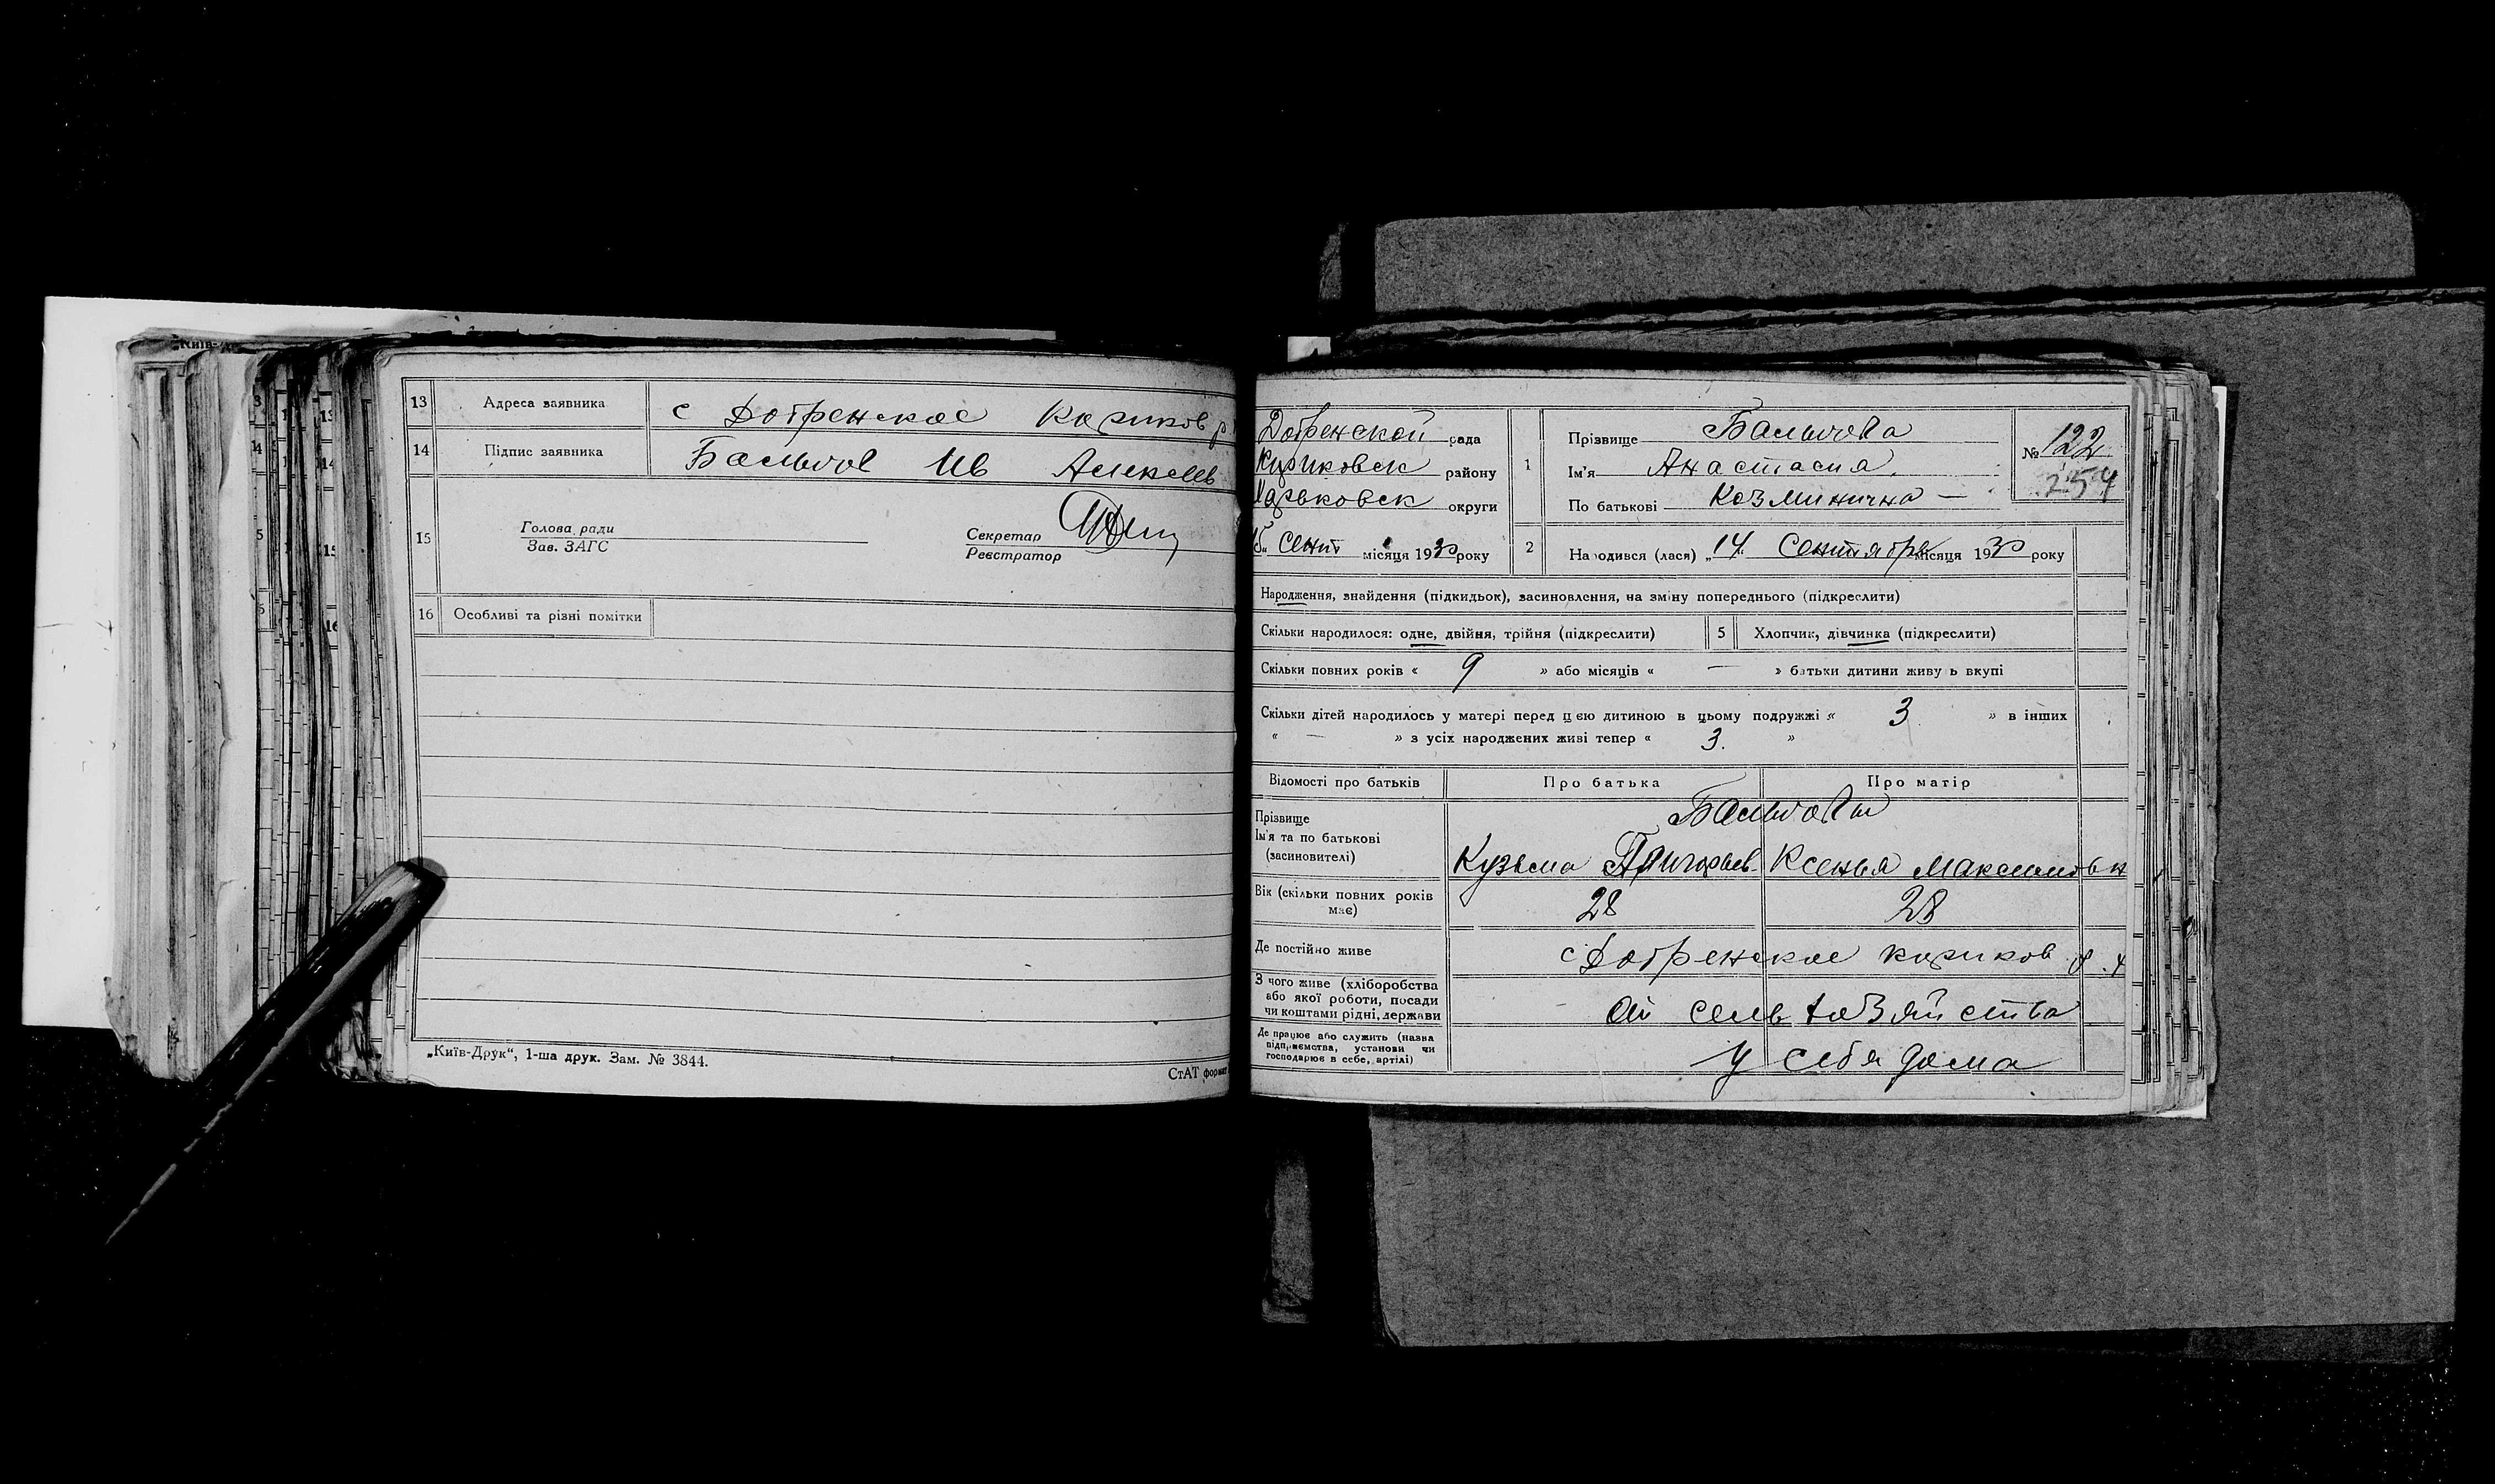 Київ-
13 Адреса заявника с Добренское Кориков р.
14 Підпис заявника Бальков Ив Алексеев
15 Голова ради Секретар
Зав. ЗАГС Реєстратор
16 Особливі та різні помітки
„Київ-Друк“, 1-ша друк. Зам. № 3844.
СтАТ формат
Добренской рада
району
Харьковск округи
15 Сент місяця 1930 року
1 Прізвище
Ім'я Анастасия
По батькові Козминична —
№ 122
254
2 Народився (лася) „14 Сентября місяця 1930 року
Народження, знайдення (підкидьок), засиновлення, на зміну попереднього (підкреслити)
Скільки народилося: одне, двійня, трійня (підкреслити) 5 Хлопчик, дівчинка (підкреслити)
Скільки повних років « 9 » або місяців « — » батьки дитини живуть вкупі
Скільки дітей народилось у матері перед цією дитиною в цьому подружжі « 3 » в інших
« — » з усіх народжених живі тепер « 3. »
Відомості про батьків Про батька Про матір
Прізвище
Ім'я та по батькові
(засиновителі) Кузьма Григорьев Ксенья Максимовн
Вік (скільки повних років
має) 28 28
Де постійно живе с Добренское Кориков р.
З чого живе (хліборобства
або якої роботи, посади
чи коштами рідні, держави От сель хозяйства
Де працює або служить (назва
підприємства, установи чи
господарює в себе, артілі) У себя дома